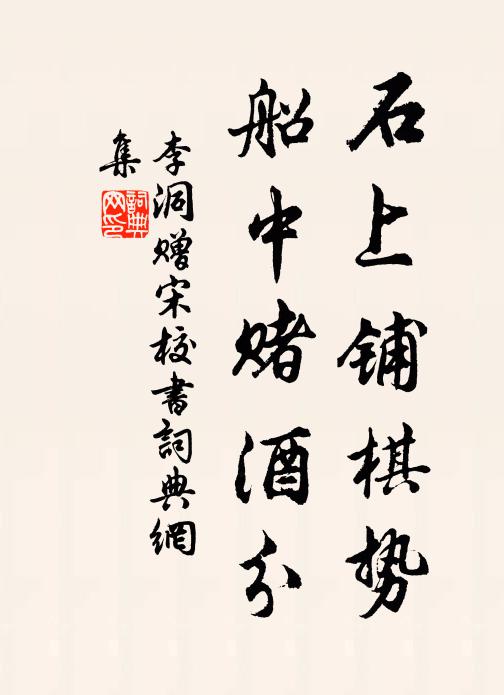 石上铺棋势
船中赌酒分
李洞赠宋校书詞典網
集
詞典
网印